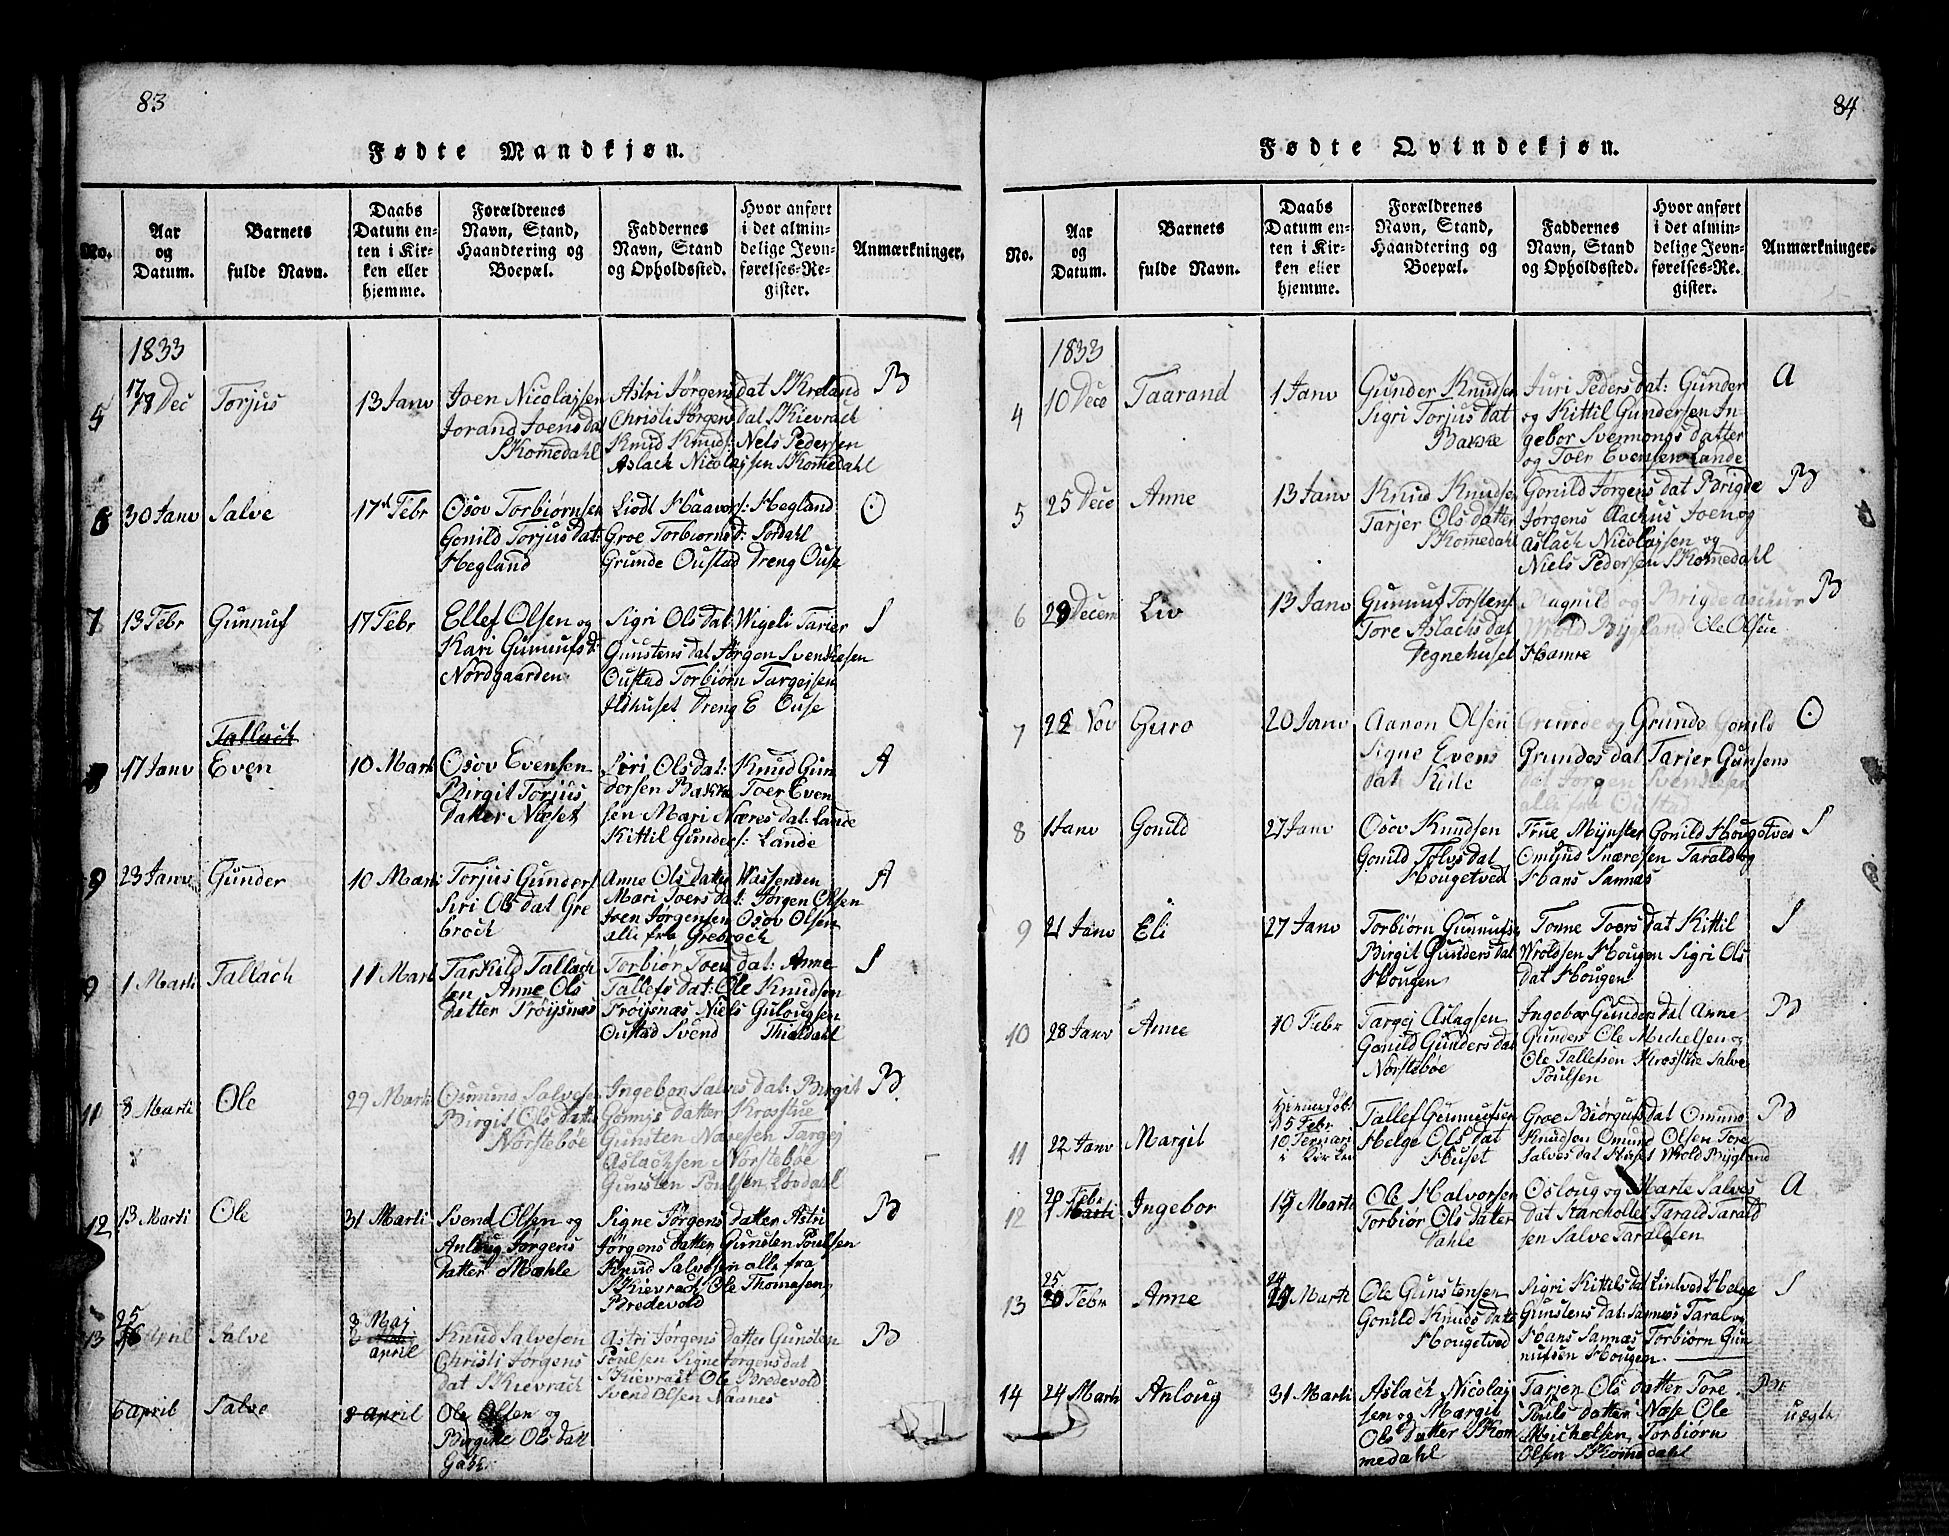 83
Fødte Mandkjøn.
No.
Aar
og
Datum.
Barnets
fulde Navn.
Daabs
Datum en-
ten i Kir-
ken eller
hjemme.
Forældrenes
Navn, Stand,
Haandtering og
Boepæl.
Faddernes
Navn, Stand
og Opholdssted.
Hvor anført
i det almin-
delige Jevn-
førelses-Re-
gister.
Anmærkninger.
1833
5
17
18 Dec
Torjus
13 Janv
Joen Nicolajsen
Jorand Joensda
SKomedahl
Astri Jørgensdat SKreland
Christi Jørgensdat SKievrach
Knud Knuds: Nels Pedersen
Aslach Nicolajsen SKomedahl
B
6
30 Janv
Salve
17d Febr
Osov Torbiørnsen
Gonild Torjusdat:
Hegland
Liodt Haavors: Hegland
Groe Torbiørnsd: Sordahl
Grunde Oustad Dreng Ouse
O
7
13 Febr
Gunnuf
17 Febr
Ellef Olsen og
Kari Gunnufsd:
Nordgaarden
Sigri Olsdat: Wigeli Tarier
Gunstensdat Jørgen Svenskesen
Oustad Torbiørn Targejsen
Ildhuset Dreng E Ouse
S
8
17 Janv
Tallach
Even
10 Marti
Osov Evensen
Birgit Torjus
Datter Næset
Siri Olsdat: Knud Gun
dersen Bakke Toer Even
sen Mari Næresdat: Lande
Kittil Gunders: Lande
A
9
23 Janv
Gunder
10 Marti
Torjus Gunders
Siri Olsdat Gre
broch
Anne Olsdatter Wassenden
Mari Toersdat: Jørgen Olsen
Joen Jørgensen Osov Olsen
alle fra Grebroch
A
9
1 Marti
Tallach
11 Marti
Tarkild Tallach
sen Anne Ols
datter Frøysnæs
Torbiør Joen dat: Anne
Tallefsdat: Ole Knudsen
Frøysnæs Niels Gulougsen
Oustad Svend Thieldahl
S
11
8 Marti
Ole
29 Marti
Osmund Salvesen
Birgit Olsdatte
Norstebøe
Ingebor Salvesdat: Birgit
datter Krosstue
Gunsten Navesen Targej
Aslachsen Norstebøe
Gunsten Poulsen Lovdahl
B
12
13 Marti
Ole
31 Marti
Svend Olsen og
Anloug Jørgens
datter Mæhle
Signe Jørgens datter Astri
Jørgens datter Gunsten Poulsen
Knud Salvesen alle fra
SKievrach Ole Thomasen
Bredevold
B
13
25
April
Salve
3 Maj
april
Knud Salvesen
Christi Jørgens
dat SKievrach
Astri Jørgens datter Gunsten
Poulsen Signe Jørgensdat
SKievrach Ole Bredevold
Svend Olsen Naanes
B
6 april
Salve
8 april
Ole Olsen og
Birgitte Olsdatt
84
Fødte Qvindekjøn.
No.
Aar
og
Datum.
Barnets
fulde Navn.
Daabs
Datum en-
ten i Kir-
ken eller
hjemme.
Forældrenes
Navn, Stand,
Haandtering og
Boepæl.
Faddernes
Navn, Stand
og Opholdssted.
Hvor anført
i det almin-
delige Jevn-
førelses-Re-
gister.
Anmærkninger.
1833
4
10 Dece
Taarand
1 Janv
Gunder Knudsen
Sigri Torjusdat
Bakke
Juri Pedersdat: Gunder
og Kittil Gundersen In-
gebor Svenmongsdatter
og Toer Evensen Lande
A
5
25 Dece
Anne
13 Janv
Knud Knudsen
Tarjer Olsdatter
SKomedahl
Gonild Jørgensdat Brigde
Jørgens Aachus Joen og
Aslach Nicolajsen og
Niels Pedersen SKomedahl
B
6
29 Decem
Liv
13 Janv
Gunnuf Torstens
Tore Aslachsdat
Degnehuset
Magnild og Brigde
Wold Bygland Ole Olsen
Hamre
B
7
22 Nov
Guro
20 Janv
Aanon Olsen
Signe Evens
dat Rüle
Grunde og Grunde Gonild
Grundesdat Tarjer Gunsens
dat Jørgen Svenskesen
alle fra Oustad
O
8
1 Janv
Gonild
27 Janv
Osov Knudsen
Gonild Tolvsdat
Hougetved
True Mynster Gonild Hougetved
Omljud Snaresen Tarald og
Hans Sannæs
S
9
21 Janv
Eli
27 Janv
Torbiørn Gunnufs:
Birgit Gundersdat
Hougen
Tonne Toersdat Kittil
Wroldsen Hougen Sigri Ols
dat Hougen
S
10
28 Janv
Anne
10 Febr
Targej Aslagsen
Gonild Gundersdat
Norstebøe
Ingebor Gundersdat Anne
Gunders Ole Michelsen og
Ole Tallefsen Krosstue Salve
Poulsen
B
11
22 Janv
Margit
Hiemmedøb:
5 Febr
10
i Kirken
Tallef Gunnufsen
Helge Olsdat
Huset
Groe Biørgufsdat Omund
Knudsen Omund Olsen Tore
Salvesdat Huset Wold Bygland
B
12
20 Febr
1 Marti
Ingebor
17 Marti
Ole Halvorsen
Torbiør Olsdatter
Dahle
Osloug og Marte Salves
dat Karcholles Tarald Tarald
sen Salve Taraldsen
A
13
25
20 Febr
Anne
24
Marti
Ole Gunstensen
Gonild Knudsdatt
Hougetved
Sigri Kittilsdat Lintved Helge
Gunstensdat: Sannæs Taral og
Hans Sannæs Torbiørn Gun
nufsen Hougen
S
14
24 Marti
Anloug
31 Marti
Aslach Nicolaj
sen og Margit
Olsdatter SKom
medahl
Tarjen Ols datter Tore
Pouls datter Næse Ole
Michelsen, Torbiørn
Olsen SKomedahl
B
uægte